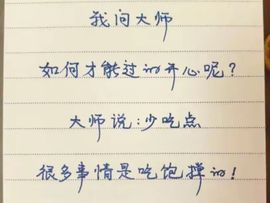 我问大师
如何才能过的开心呢?
大师说:少吃点
很多事情是吃饱撑的!